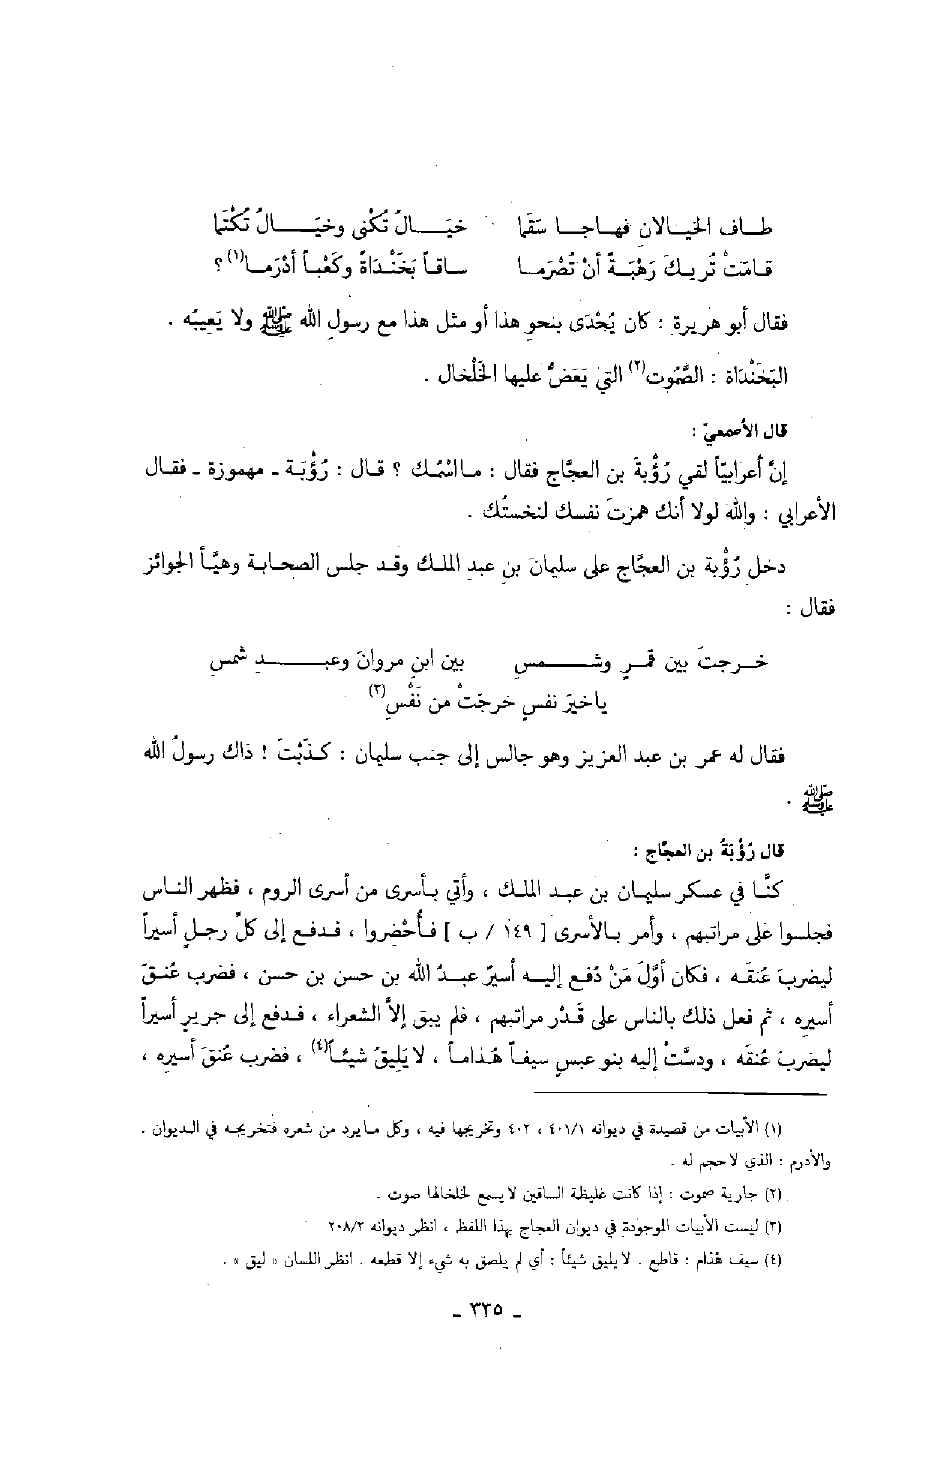 طاف الخيالان فهاجا سَقَما خيَالُ تُكْنى وخيَالُ تُكْتَما
قامَتْ تُريكَ رَهْبَةً أنْ تُصْرَما ساقاً بَخَنْدَاةً وكَعْباً أدْرَما(١) ؟
فقال أبو هريرة : كان يُحْدَى بنحوِ هذا أو مثل هذا مع رسولِ الله ﷺ ولا يَعِيبُه .
البَخَنْدَاة : الصَّمُوت(٢) التي يَعَضُّ عليها الخَلْخال .
قال الأصمعيّ :
إنَّ أعرابيّاً لقي رُؤْبةَ بن العجَّاج فقال : مااسْمُك ؟ قال : رُؤْبَة ـ مهموزة ـ فقال
الأعرابي : والله لولا أنك همزتَ نفسك لنخستُك .
دخل رُؤْبة بن العجَّاج على سليمانَ بنِ عبدِ الملك وقد جلس الصحابة وهيَّأ الجوائز
فقال :
خرجتَ بين قمرٍ وشمسِ بين ابنِ مروانَ وعبدِ شمسِ
ياخيرَ نفسٍ خرجَتْ من نَفْسِ(٣)
فقال له عمر بن عبد العزيز وهو جالس إلى جنب سليمان : كذَبْتَ ! ذاك رسولُ الله
ﷺ .
قال رُؤْبَةُ بن العجَّاج :
كنَّا في عسكر سليمان بن عبد الملك ، وأتي بأسرى من أسرى الروم ، فظهر الناس
فجلسوا على مراتبهم ، وأمر بالأسرى [ ١٤٩ / ب ] فأُحْضِروا ، فدفع إلى كلِّ رجلٍ أسيراً
ليضربَ عنقَه ، فكان أوَّلَ مَنْ دُفع إليه أسيرٌ عبدُ الله بن حسن بن حسن ، فضرب عُنقَ
أسيره ، ثم فعل ذلك بالناس على قَدْر مراتبهم ، فلم يبق إلاَّ الشعراء ، فدفع إلى جريرٍ أسيراً
ليضربَ عُنقَه ، ودسَّتْ إليه بنو عبسٍ سيفاً هُذاماً ، لا يَلِيقُ شيئاً(٤) ، فضرب عُنقَ أسيره ،
(١) الأبيات من قصيدة في ديوانه ٤٠١/١ ، ٤٠٢ وتخريجها فيه ، وكل مايرد من شعره فتخريجه في الديوان .
والأدرم : الذي لا حجم له .
(٢) جارية صموت : إذا كانت غليظة الساقين لا يسمع لخلخالها صوت .
(٣) ليست الأبيات الموجودة في ديوان العجاج بهذا اللفظ ، انظر ديوانه ٢٠٨/٢
(٤) سيف هُذام : قاطع . لا يليق شيئاً : أي لم يلصق به شيء إلا قطعه . انظر اللسان « ليق » .
ـ ٣٣٥ ـ